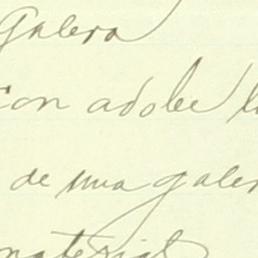 Galera
con adobe
de una galer
material